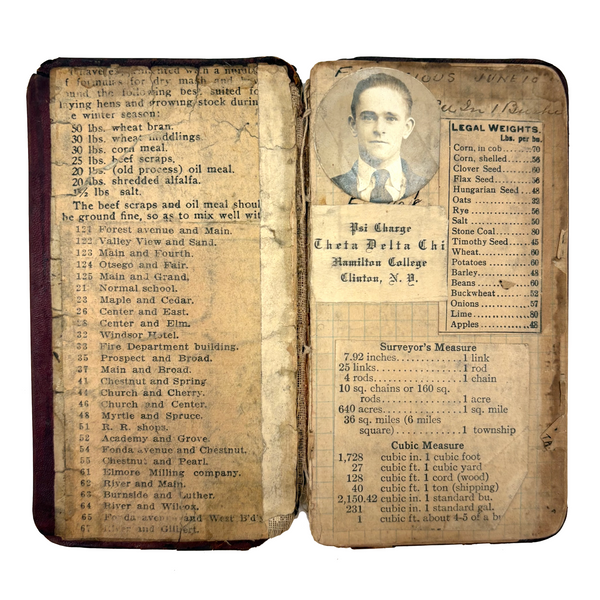 with a
f formulas for dry mash and
the following best suited fo
laying hens and growing stock durin
e winter season:
50 lbs. wheat bran.
30 lbs. wheat middlings.
30 lbs. corn meal.
25 lbs. beef scraps,
20 lbs. (old process) oil meal.
20 lbs. shredded alfalfa.
½ lbs. salt.
The beef scraps and oil meal shoul
be ground fine, so as to mix well wit
121 Forest avenue and Main.
122 Valley View and Sand.
123 Main and Fourth.
124 Otsego and Fair.
125 Main and Grand.
21 Normal school.
23 Maple and Cedar.
26 Center and East.
28 Center and Elm.
32 Windsor Hotel.
33 Fire Department building.
35 Prospect and Broad.
37 Main and Broad.
41 Chestnut and Spring
44 Church and Cherry.
46 Church and Center.
48 Myrtle and Spruce.
51 R. R. shops.
52 Academy and Grove.
54 Fonda avenue and Chestnut.
55 Chestnut and Pearl.
61 Elmore Milling company.
62 River and Main.
63 Burnside and Luther.
64 River and Wilcox.
65 Fonda avenue and West B'd's
67 and Gilbert.
JUNE 10
Psi Charge
Theta Delta Chi
Hamilton College
Clinton, N. Y.
LEGAL WEIGHTS.
Lbs. per bu.
Corn, in cob 70
Corn, shelled 56
Clover Seed 60
Flax Seed 56
Hungarian Seed 48
Oats 32
Rye 56
Salt 50
Stone Coal 80
Timothy Seed 45
Wheat 60
Potatoes 60
Barley 48
Beans 60
Buckwheat 52
Onions 57
Lime 80
Apples 48
Surveyor's Measure
7.92 inches 1 link
25 links 1 rod
4 rods 1 chain
10 sq. chains or 160 sq.
rods 1 acre
640 acres 1 sq. mile
36 sq. miles (6 miles
square) 1 township
Cubic Measure
1,728 cubic in. 1 cubic foot
27 cubic ft. 1 cubic yard
128 cubic ft. 1 cord (wood)
40 cubic ft. 1 ton (shipping)
2,150.42 cubic in. 1 standard bu.
231 cubic in. 1 standard gal.
1 cubic ft. about 4-5 of a bu